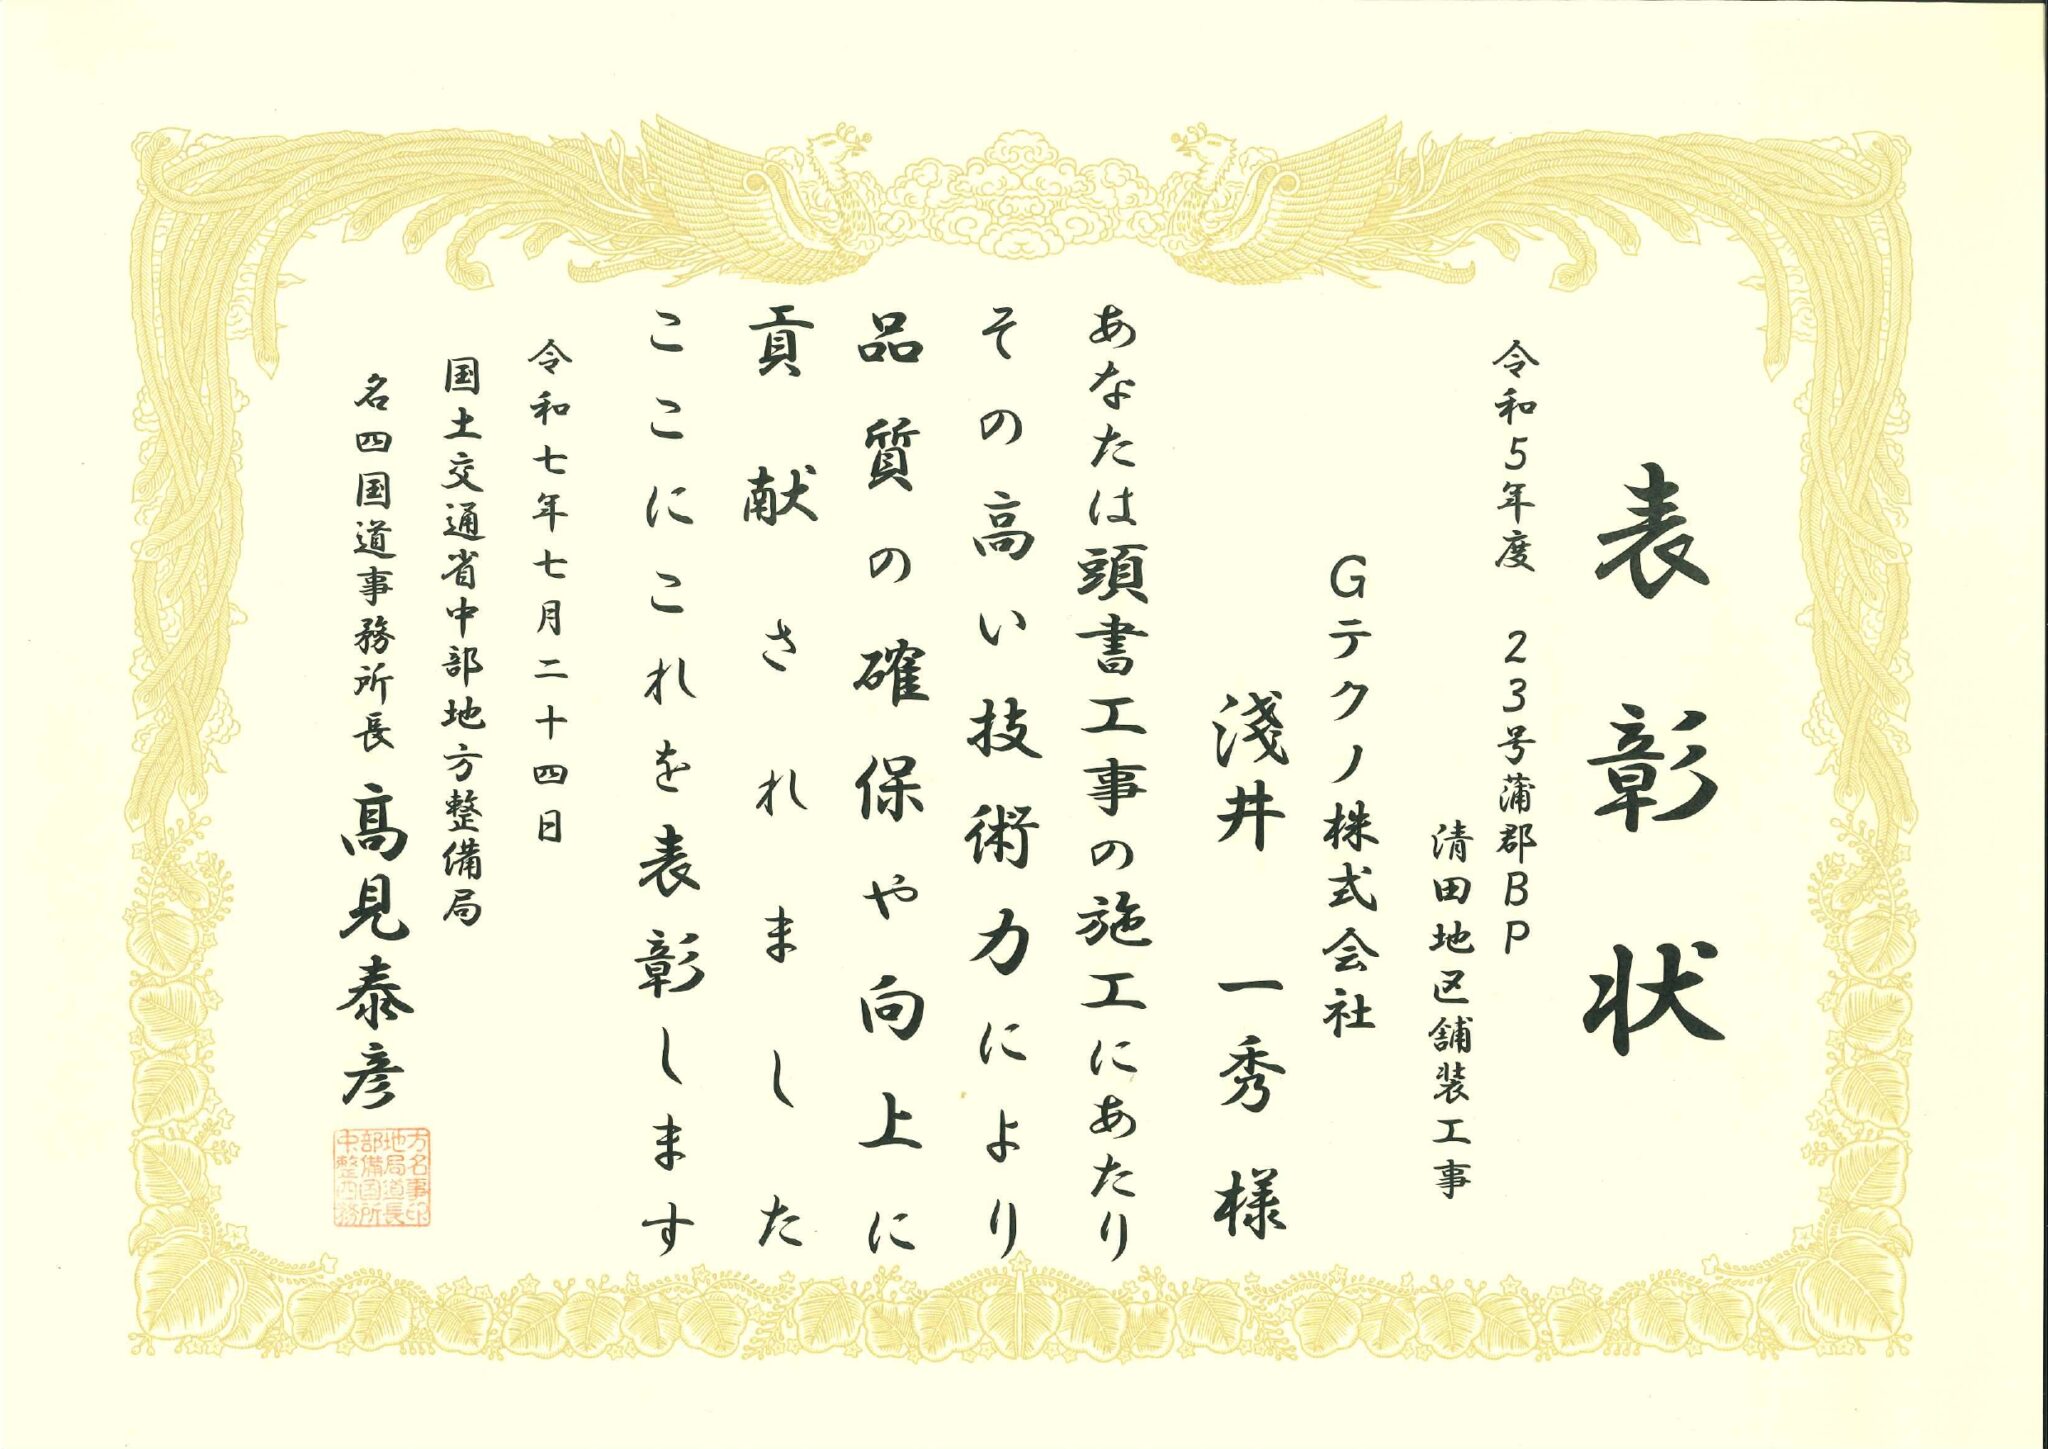 表彰状
令和5年度 23号蒲郡BP
清田地区舗装工事
Gテクノ株式会社
淺井 一秀 様
あなたは頭書工事の施工にあたり
その高い技術力により
品質の確保や向上に
貢献されました
ここにこれを表彰します
令和七年七月二十四日
国土交通省中部地方整備局
名四国道事務所長 髙見泰彦
中部地方
整備局名
四国道事
務所長印